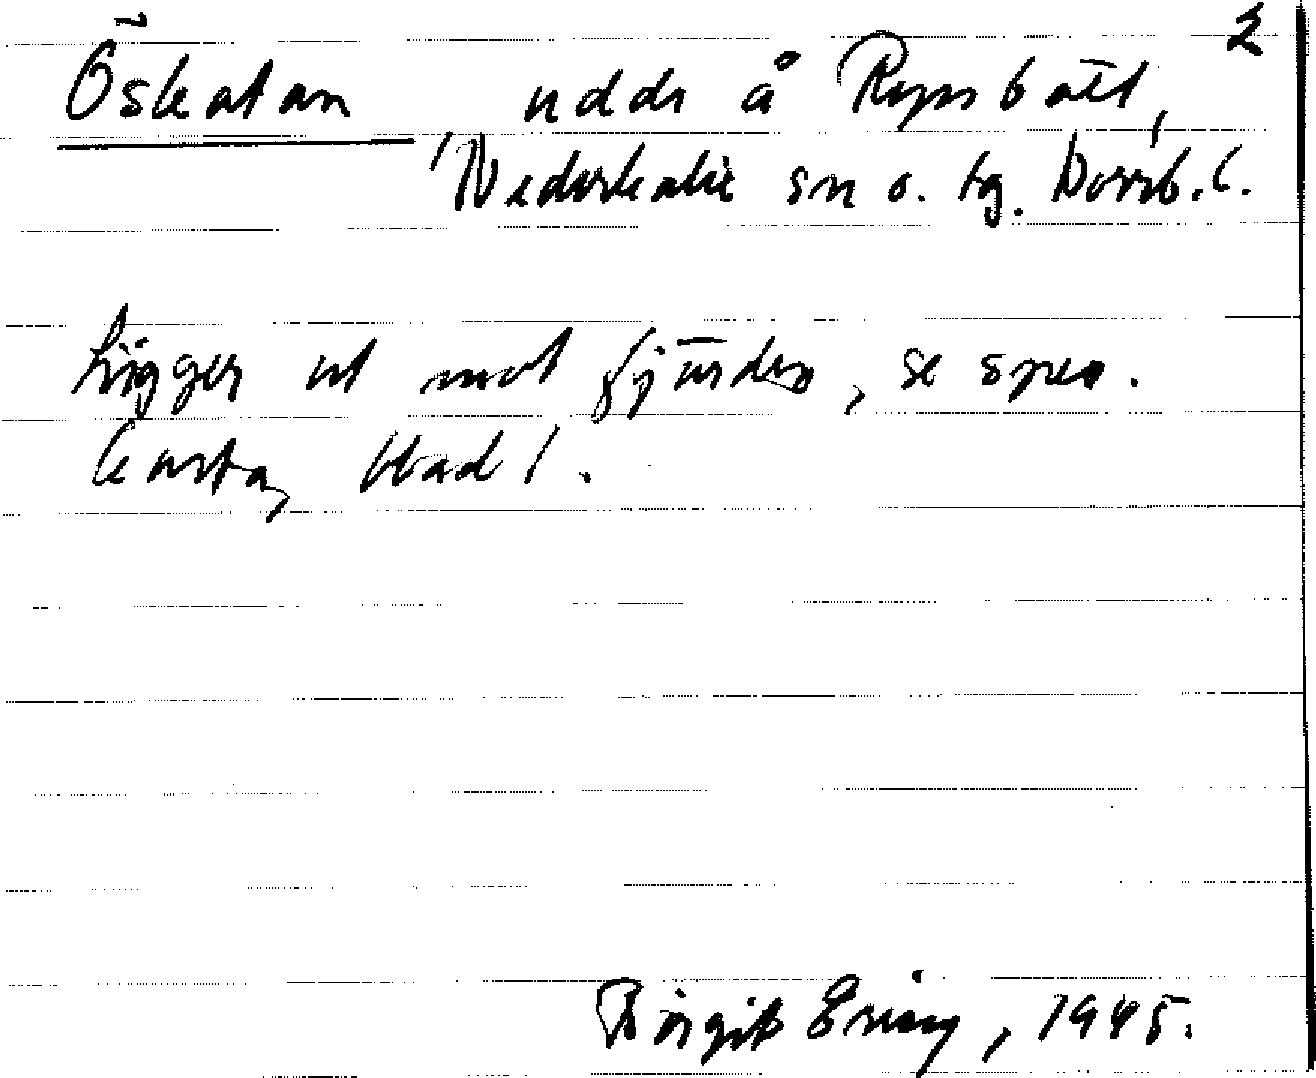 2
Öskatan udde å Rynsbätt,
Nederkalix sn o. tg. Norrb. l.
Ligger ut mot fjärden, se spec.
karta, blad 1.
Birgit Ering, 1945.